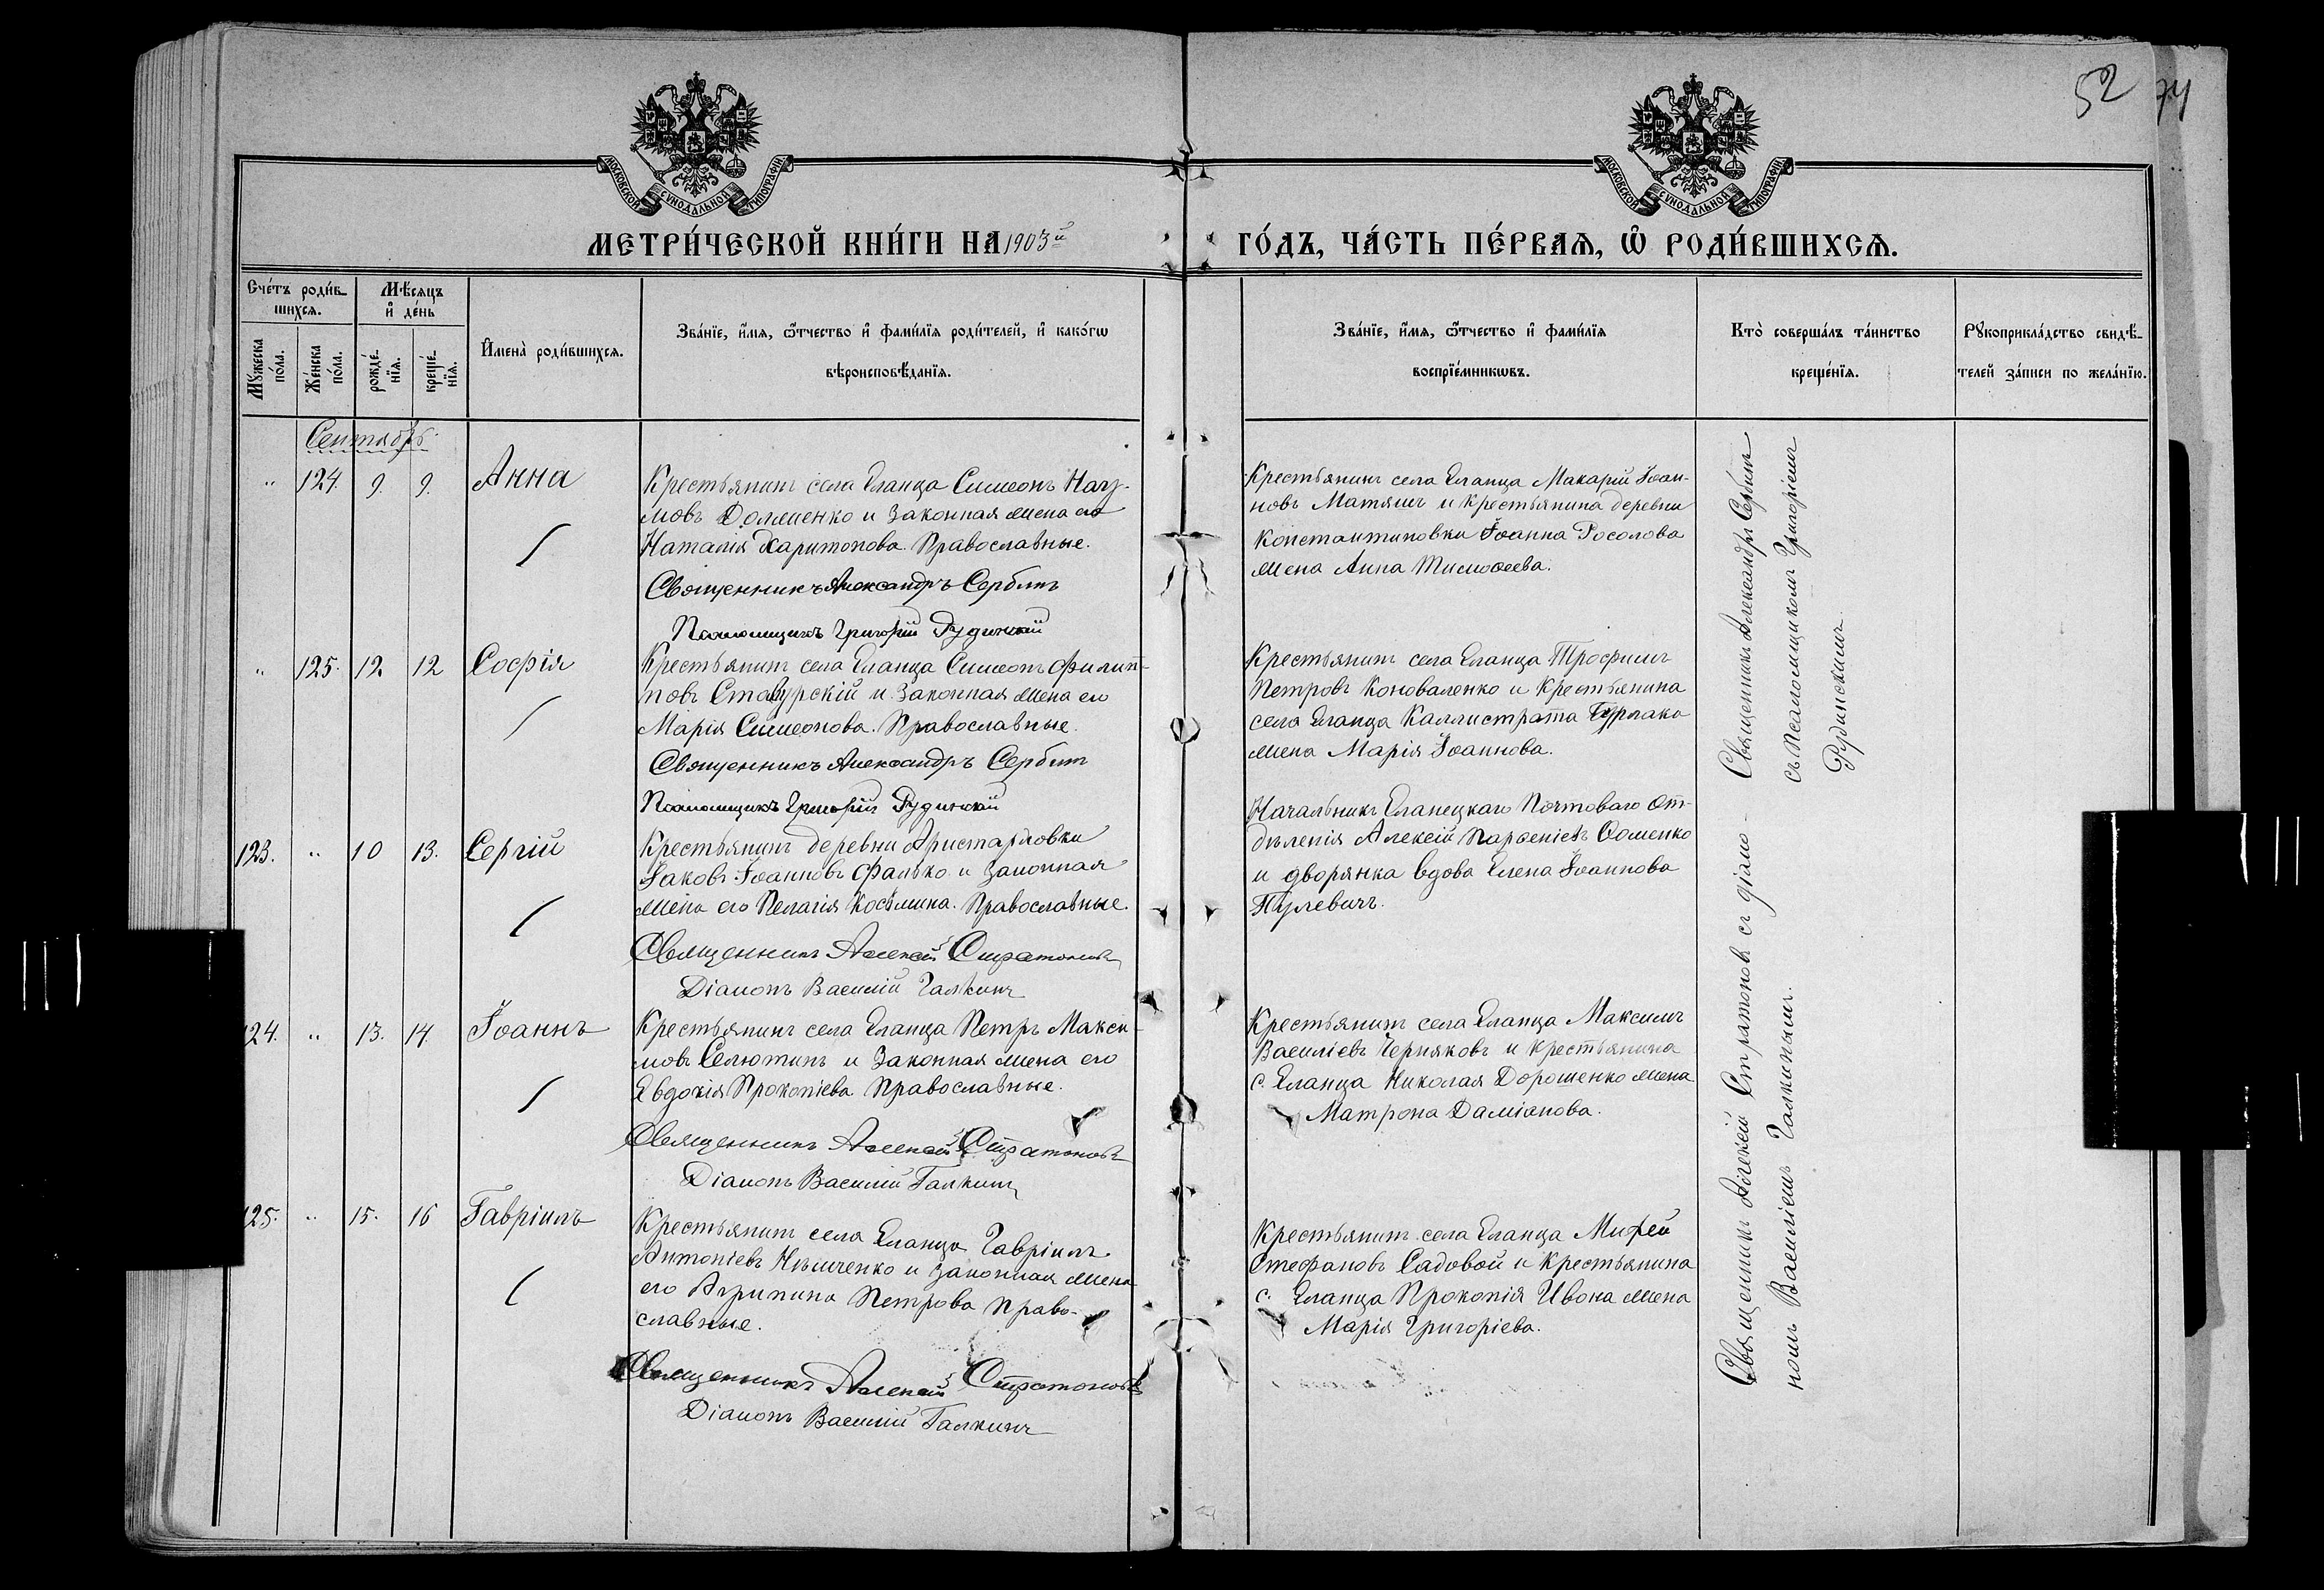 52
74
МОСКОВСКОЙ СУНОДАЛЬНОЙ ТИПОГРАФІИ
МОСКОВСКОЙ СУНОДАЛЬНОЙ ТИПОГРАФІИ
МЕТРИ́ЧЕСКОЙ КНИ́ГИ НА 1903й
ГО́ДЪ, ЧА́СТЬ ПЕ́РВАѦ, Ѽ РОДИ́ВШИХСѦ.
Сче́тъ роди́в-
шихсѧ.
Мꙋ́жеска
по́ла.
Же́нска
по́ла.
Мѣ́сѧцъ
и҆ де́нь
рожде́-
нїѧ.
креще́-
нїѧ.
И҆мена̀ роди́вшихсѧ.
Зва́нїе, и҆́мѧ, ѻ҆́тчество и҆ фами́лїѧ роди́телей, и҆ како́гѡ
вѣроисповѣ́данїѧ.
Зва́нїе, и҆́мѧ, ѻ҆́тчество и҆ фами́лїѧ
воспрїе́мникѡвъ.
Кто̀ соверша́лъ та́инство
креще́нїѧ.
Рꙋкоприкла́дство свидѣ́-
телей за́писи по жела́нїю.
Сентябрь.
" 124. 9. 9. Анна
Крестьянинъ села Еланца Симеонъ Нау-
мовъ Долженко и законная жена его
Наталія Харитонова. Православные.
Священникъ Александръ Сербинъ
Псаломщикъ Григорій Рудинскій
Крестьянинъ села Еланца Макарій Іоан-
новъ Матяшъ и крестьянина деревни
Константиновки Іоанна Росолова
жена Анна Тимоѳеева.
" 125. 12. 12 Софія
Крестьянинъ села Еланца Симеонъ Филип-
повъ Ставурскій и законная жена его
Марія Симеонова. Православные.
Священникъ Александръ Сербинъ
Псаломщикъ Григорій Рудинскій
Крестьянинъ села Еланца Трофимъ
Петровъ Коноваленко и крестьянина
села Еланца Каллистрата Бурлака
жена Марія Іоаннова.
123. " 10 13. Сергій
Крестьянинъ деревни Аристарховки
Іаковъ Іоанновъ Фалько и законная
жена его Пелагія Косьмина. Православные.
Священникъ Алексій Стратоновъ
Діаконъ Василій Галкинъ
Начальникъ Еланецкаго Почтоваго От-
дѣленія Алексій Парѳеніевъ Ѳоменко
и дворянка вдова Елена Іоаннова
Пулевичъ.
124. " 13. 14. Іоаннъ
Крестьянинъ села Еланца Петръ Макси-
мовъ Селютинъ и законная жена его
Евдокія Прокопіева Православные.
Священникъ Алексій Стратоновъ
Діаконъ Василій Галкинъ
Крестьянинъ села Еланца Максимъ
Василіевъ Черняковъ и крестьянина
с. Еланца Николая Дорошенко жена
Матрона Даміанова.
125. " 15. 16 Гавріилъ
Крестьянинъ села Еланца Гавріилъ
Антоніевъ Нѣмченко и законная жена
его Агрипина Петрова Право-
славные.
Священникъ Алексій Стратоновъ
Діаконъ Василій Галкинъ
Крестьянинъ села Еланца
Стефановъ Садовой и крестьянина
с. Еланца Прокопія Ивока жена
Марія Григоріева.
Священникъ Александръ Сербинъ
съ Псаломщикомъ Григоріемъ
Рудинскимъ.
Священникъ Алексій Стратоновъ съ діако-
номъ Василіемъ Галкинымъ.